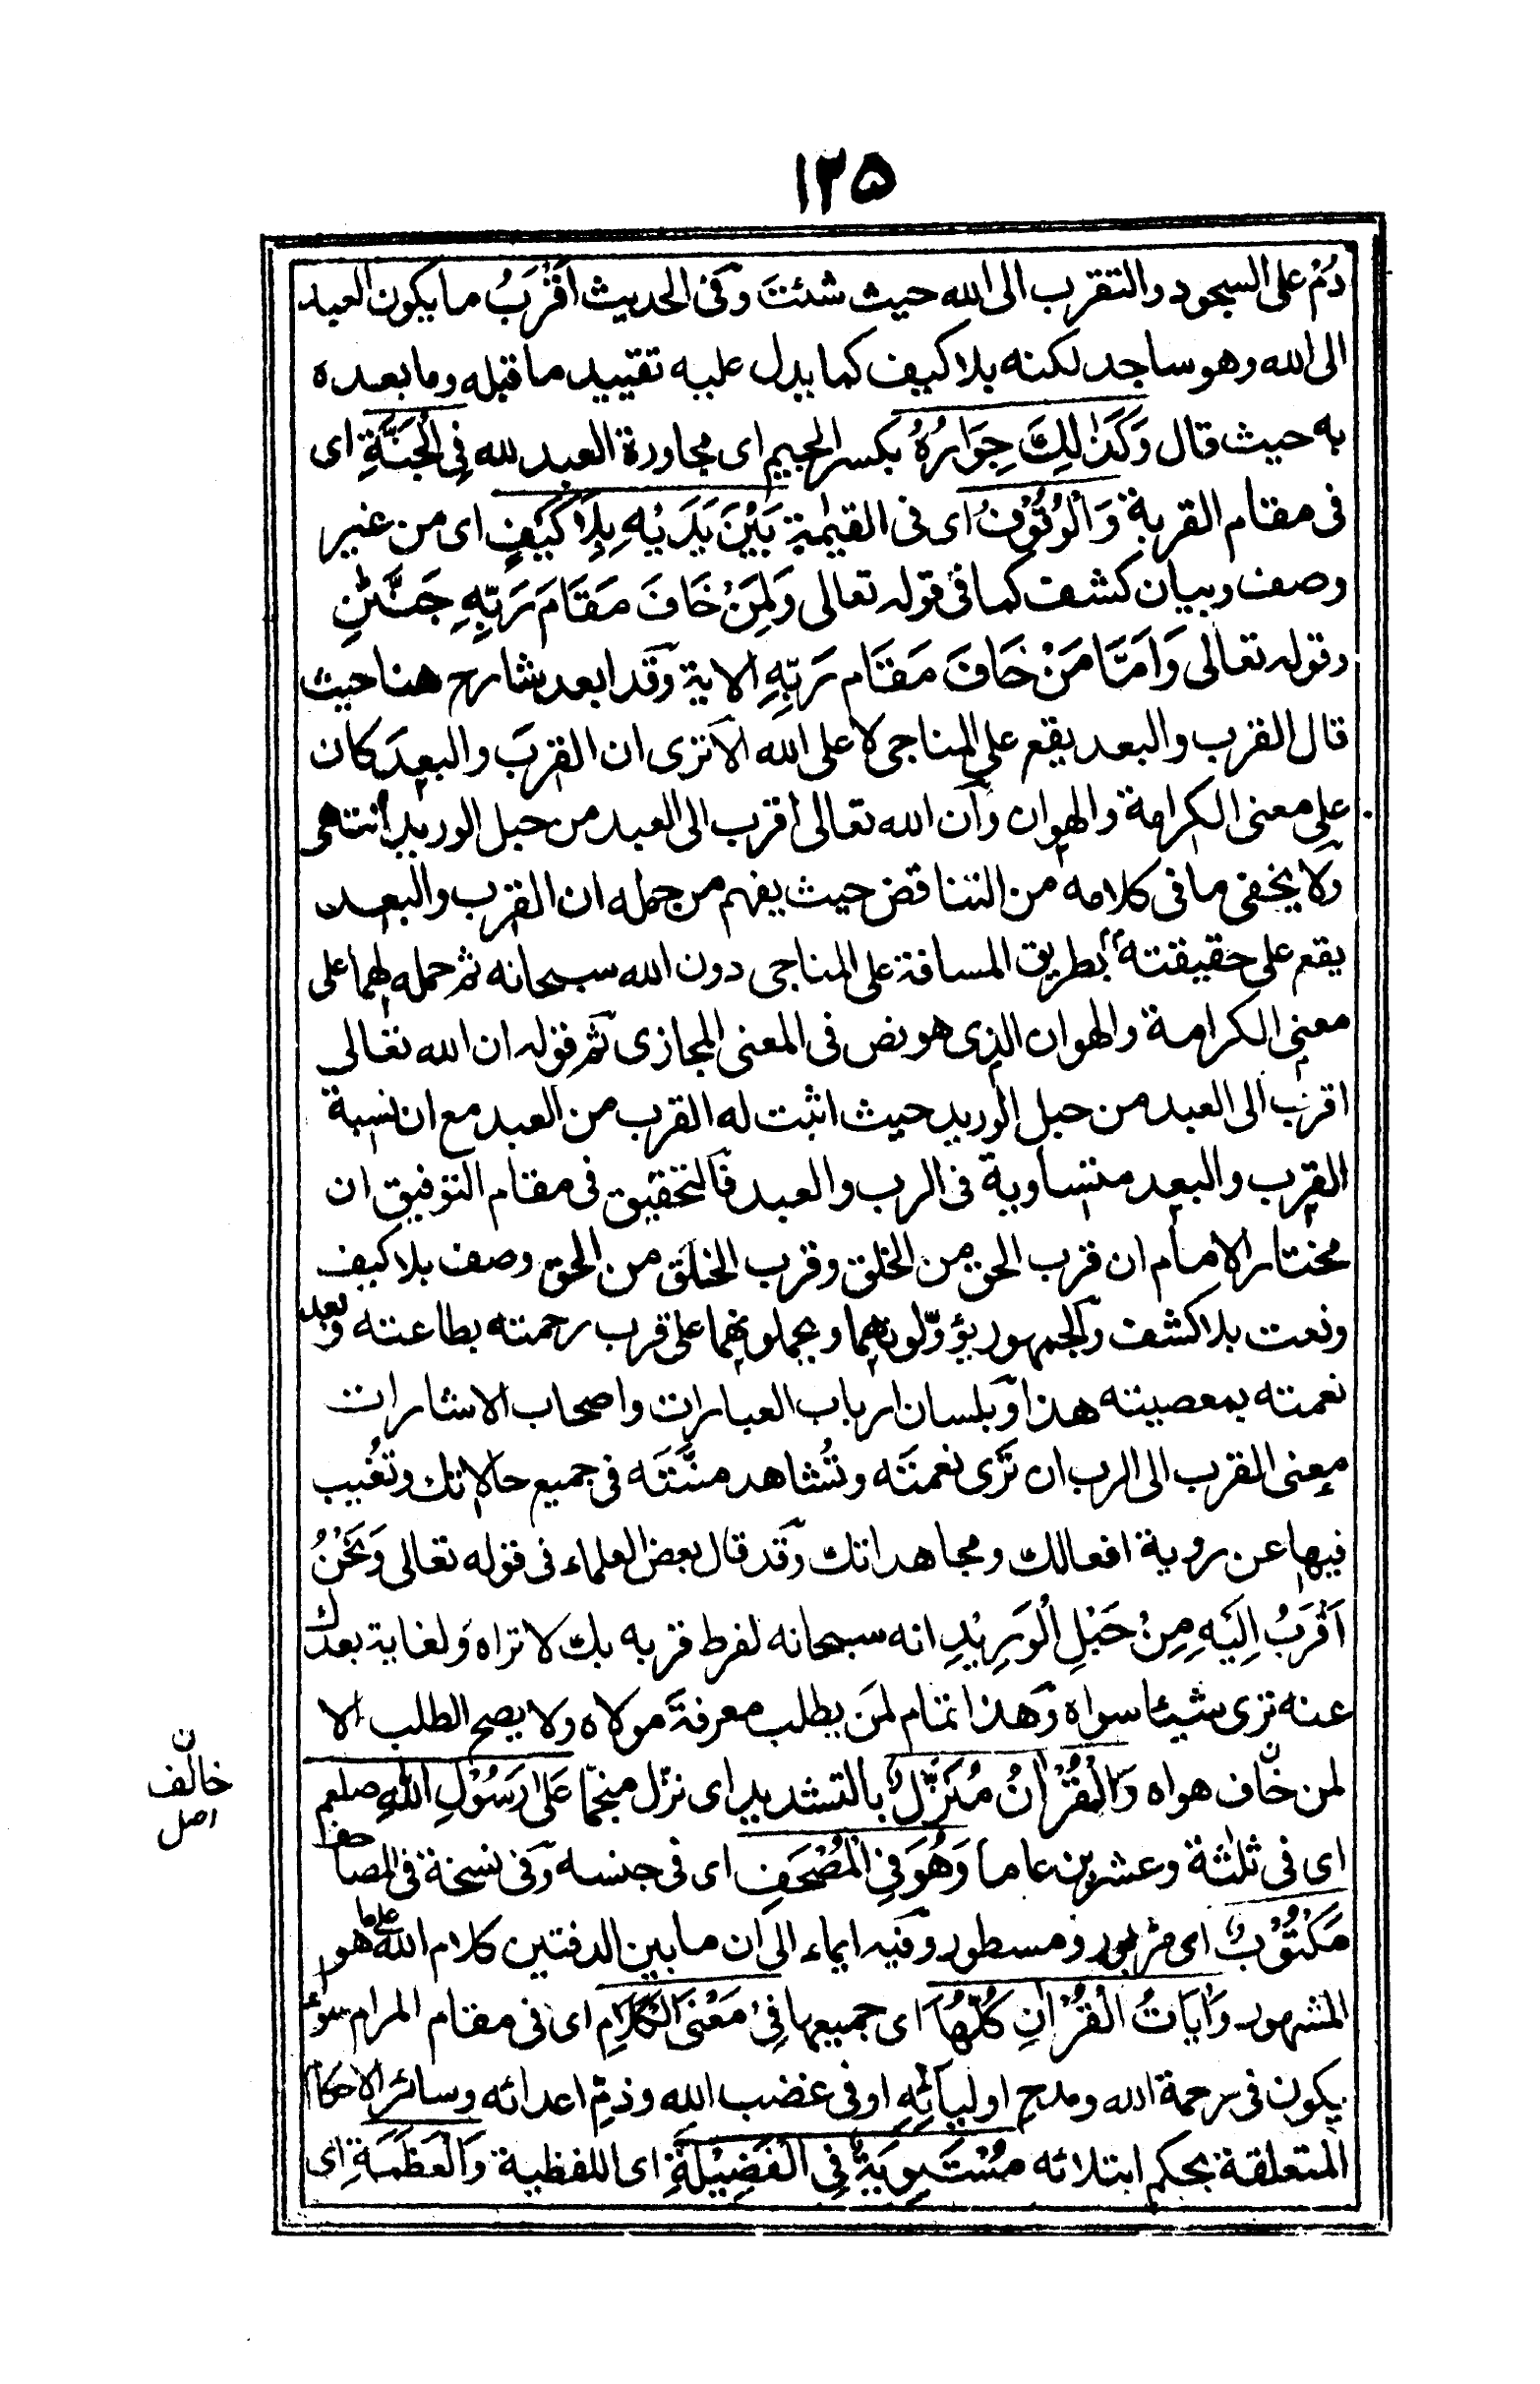 ١٢٥
دُمْ على السجود والتقرب الى الله حيث شئتَ وفى الحديث اَقْرَبُ ما يكون العبد
الى الله وهو ساجد لكنه بلا كيف كما يدل عليه تقييد ما قبله وما بعده
به حيث قال وَكَذٰلِكَ جِوَارُهُ بكسر الجيم اى مجاورة العبد لله فِى الْجَنَّةِ اى
فى مقام القربة وَالْوُقُوْفُ اى فى القيٰمة بَيْنَ يَدَيْهِ بِلَا كَيْفٍ اى من غير
وصف وبيان كشف كما فى قوله تعالى وَلِمَنْ خَافَ مَقَامَ رَبِّهٖ جَنَّتٰنِ
وقوله تعالى وَاَمَّا مَنْ خَافَ مَقَام رَبِّهٖ الاية وقد ابعد شارح هنا حيث
قال القرب والبعد يقع على المناجى لا على الله الا ترى ان القربَ والبعدَ كان
على معنى الكرامة والهوان وان الله تعالى اقرب الى العبد من حبل الوريد انتهى
ولا يخفى ما فى كلامه من التناقض حيث يفهم من جمله ان القرب والبعد
يقع على حقيقته بطريق المسافة على المناجى دون الله سبحانه ثم حمله لهما على
معنى الكرامة والهوان الذى هو نص فى المعنى المجازى ثم قوله ان الله تعالى
اقرب الى العبد من حبل الوريد حيث اثبت له القرب من العبد مع ان نسبة
القرب والبعد متساوية فى الرب والعبد فالتحقيق فى مقام التوفيق ان
مختار الامام ان قرب الحق من الخلق وقرب الخلق من الحق وصف بلا كيف
ونعت بلا كشف والجمهور يؤوّلونهما ويحملونهما على قرب رحمته بطاعته وبعد
نعمته بمعصيته هذا وبلسان ارباب العبارات واصحاب الاشارات
معنى القرب الى الرب ان ترٰى نعمتَه وتُشاهد منَّتَه فى جميع حالاتك وتغُيب
فيها عن روية افعالك ومجاهداتك وقد قال بعض العلماء فى قوله تعالى وَنَحْنُ
اَقْرَبُ اِلَيْهِ مِنْ حَبْلِ الْوَرِيْدِ انه سبحانه لفرط قربه بك لا تراه ولغاية بعدك
عنه ترى شيئا سواه وهذا تمام لمن يطلب معرفة مولاه ولا يصح الطلب الا
لمن خاف هواه وَالْقُرْاٰنُ مُنَزَّلٌ بالتشديد اى نزّل منجّما عَلٰى رَسُوْلِ اللهِ صلعم
اى فى ثلٰثة وعشرين عاما وَهُوَ فِى الْمُصْحَفِ اى فى جنسه وفى نسخة فى المصاحف
مَكْتُوْبٌ اى مزبور ومسطور وفيه ايماء الى ان ما بين الدفتين كلام الله على ما هو
المشهور وَاٰيَاتُ الْقُرْاٰنِ كُلُّهَا اى جميعها فِىْ مَعْنَى الْكَلَامِ اى فى مقام المرام سواء
يكون فى رحمة الله ومدح اوليائهٖ او فى غضب الله وذمّ اعدائه وسائر الاحكام
المتعلقة بحكم ابتلائه مُسْتَوِيَةٌ فِى الْفَضِيْلَةِ اى اللفظية وَالْعَظَمَةِ اى
ن
خالف
اصل